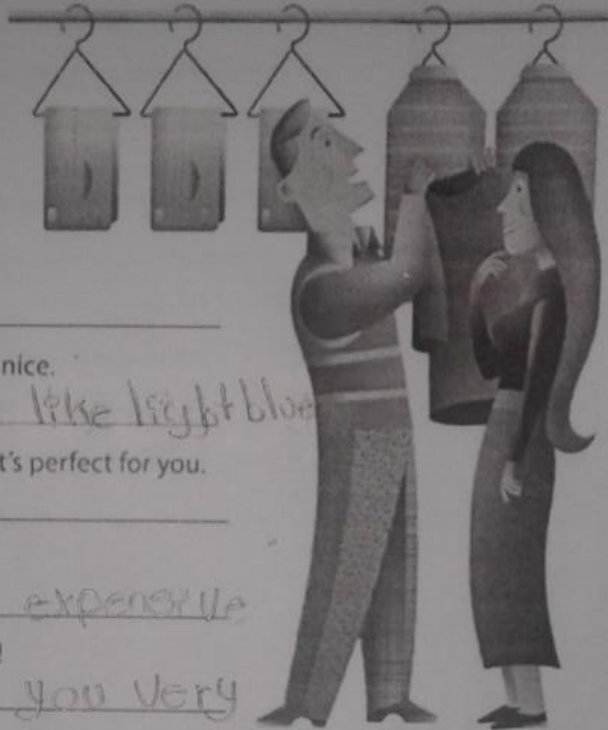 nice.
like light blue
t's perfect for you.
expensive
you very